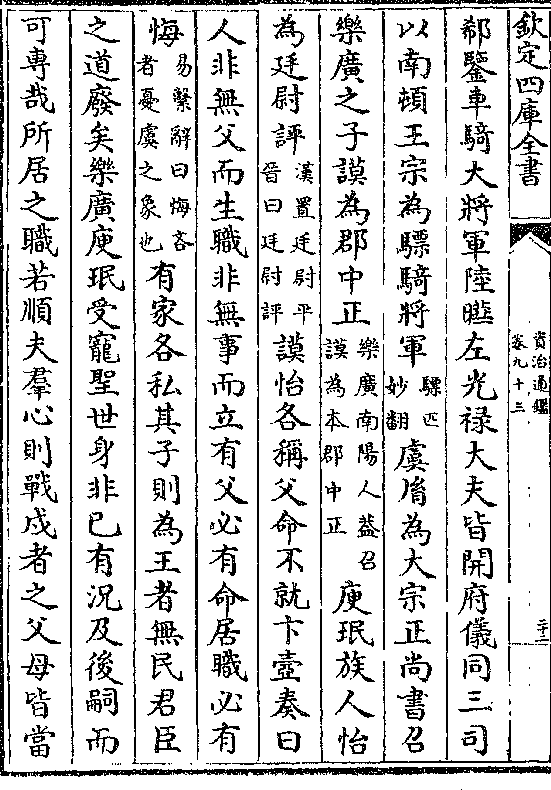 欽定四庫全書
資治通鑑
卷九十三
二十二
郗鑒車騎大將軍陸曄左光祿大夫皆開府儀同三司
以南頓王宗為驃騎將軍驃匹妙翻虞𦙍為大宗正尚書召
樂廣之子謨為郡中正樂廣南陽人蓋召謨為本郡中正庾珉族人怡
為廷尉評漢置廷尉平晉曰廷尉評謨怡各稱父命不就卞壼奏曰
人非無父而生職非無事而立有父必有命居職必有
悔易繫辭曰悔吝者憂虞之象也有家各私其子則為王者無民君臣
之道廢矣樂廣庾珉受寵聖世身非已有況及後嗣而
可專哉所居之職若順夫羣心則戰戍者之父母皆當